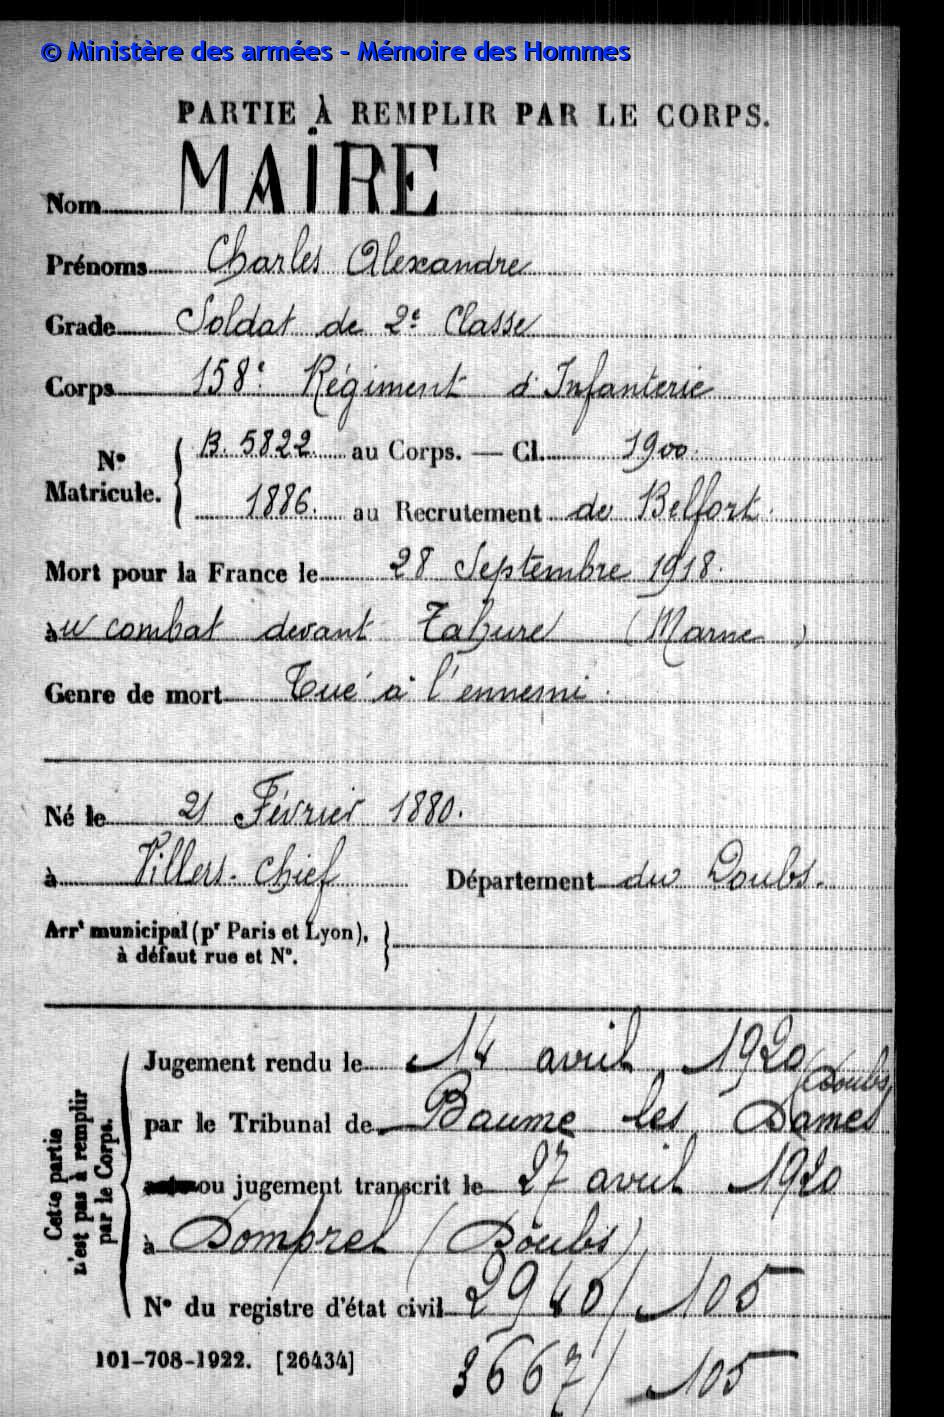 © Ministère des armées - Mémoire des Hommes
PARTIE À REMPLIR PAR LE CORPS.
Nom MAIRE
Prénoms Charles Alexandre
Grade Soldat de 2e Classe
Corps 158e Régiment d'Infanterie
N° Matricule. { B. 5822. au Corps. — Cl. 1900.
1886. au Recrutement de Belfort.
Mort pour la France le 28 Septembre 1918.
au combat devant Tahure (Marne)
Genre de mort Tué à l'ennemi.
Né le 21 Février 1880.
à Villers-Chief Département du Doubs.
Arrt municipal (pr Paris et Lyon),
à défaut rue et N°.
Cette partie n'est pas à remplir par le Corps.
Jugement rendu le 14 avril 1920
par le Tribunal de Baume les Dames (Doubs)
ou jugement transcrit le 27 avril 1920
à Domprel (Doubs)
N° du registre d'état civil 2940/105
101-708-1922. [26434] 3667/105